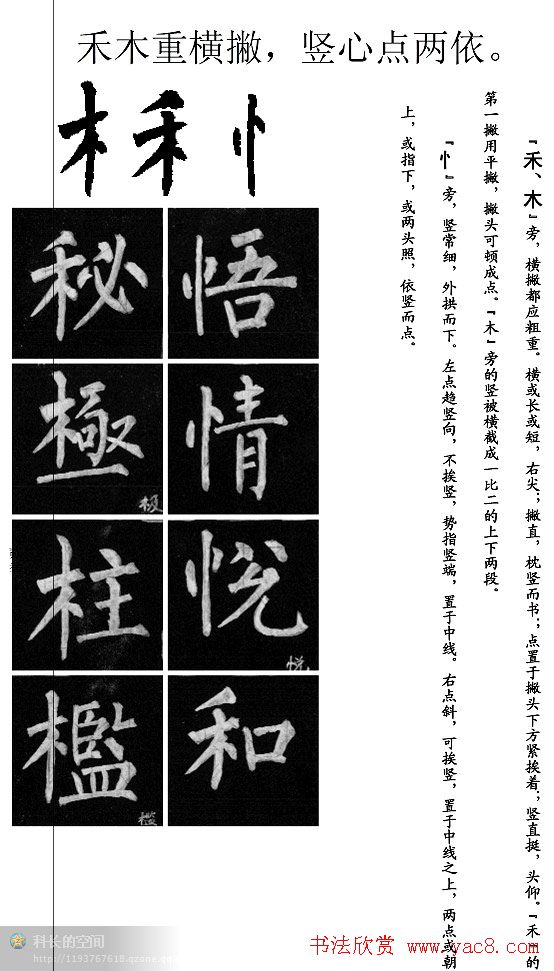 禾木重横撇，竖心点两依。
木禾忄
『禾、木』旁，横撇都应粗重。横或长或短，右尖；撇直，枕竖而书；点置于撇头下方紧挨着；竖直挺，头仰。『禾』的
第一撇用平撇，撇头可顿成点。『木』旁的竖被横截成一比二的上下两段。
『忄』旁，竖常细，外拱而下。左点趋竖向，不挨竖，势指竖端，置于中线。右点斜，可挨竖，置于中线之上，两点或朝
上，或指下，或两头照，依竖而点。
秘 悟
極 情
极
柱 悦
悦
檻 和
槛
科长的空间
http://1193767618.qzone.qq
书法欣赏 www.yac8.com